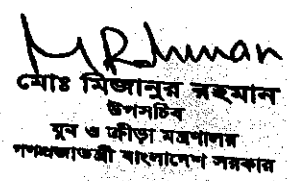 MRhman
মোঃ মিজানুর রহমান
উপসচিব
যুব ও ক্রীড়া মন্ত্রণালয়
গণপ্রজাতন্ত্রী বাংলাদেশ সরকার